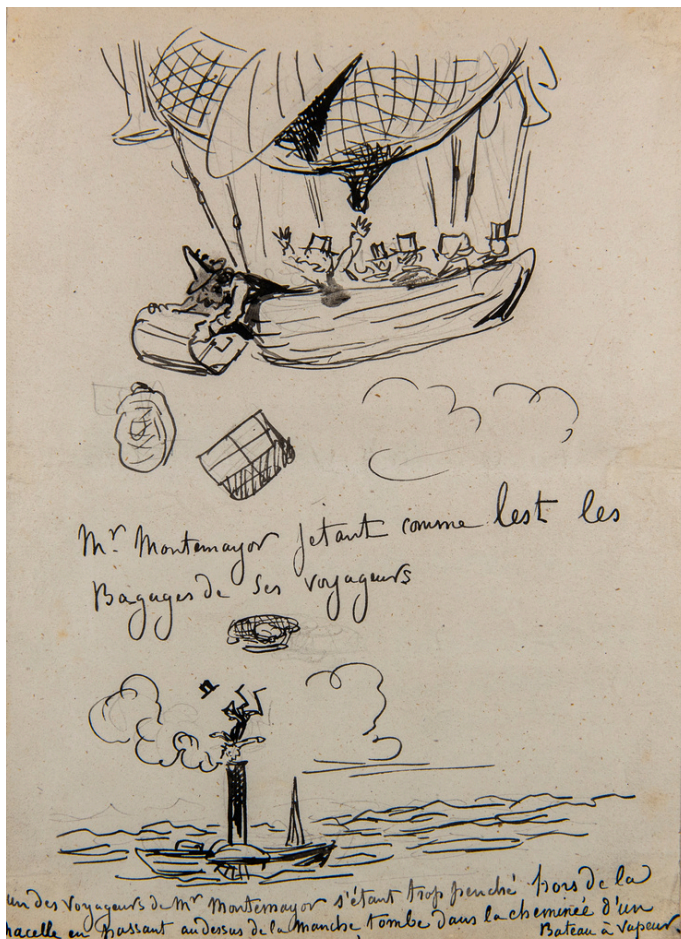 Mr Montemayor jetant comme lest les
Bagages de ses voyageurs
un des voyageurs de Mr Montemayor s'étant trop penché hors de la
nacelle en passant au dessus de la Manche tombe dans la cheminée d'un
Bateau à vapeur.